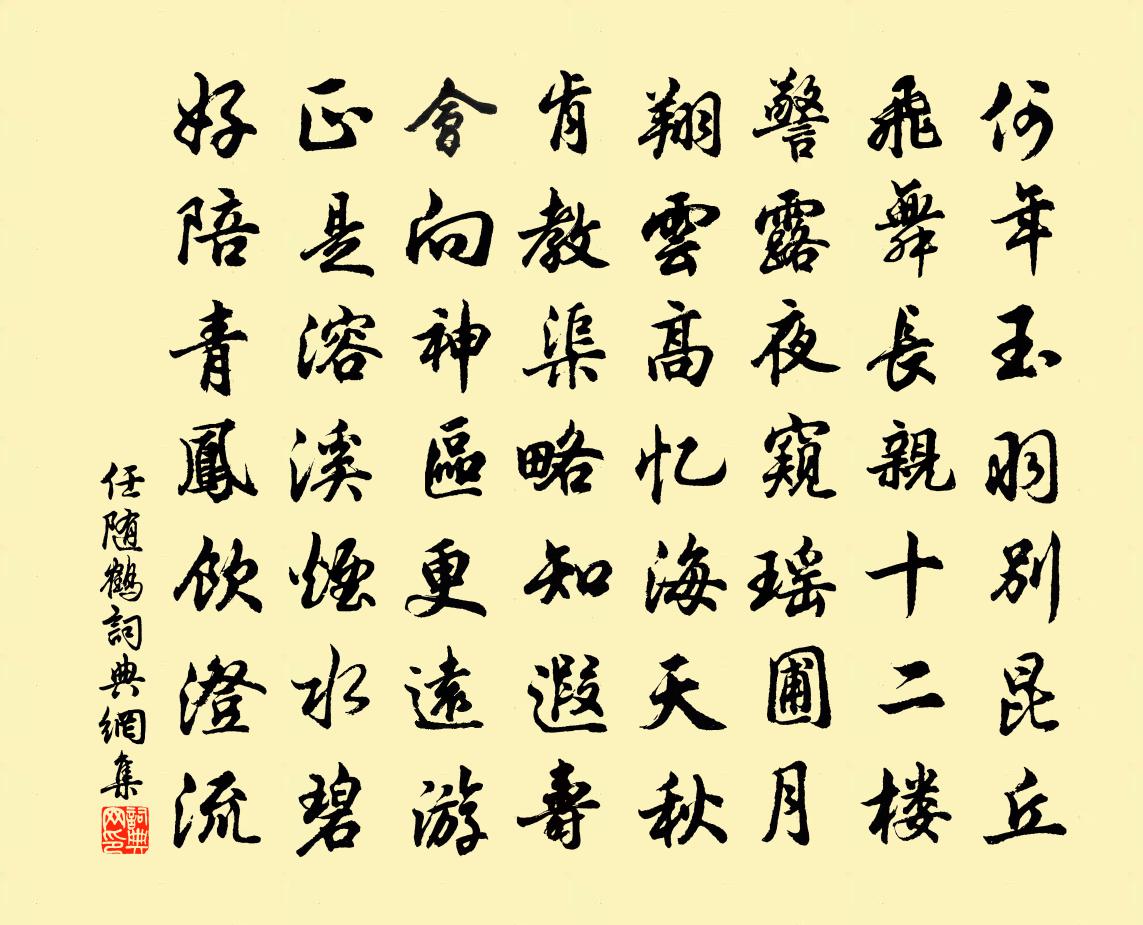 何年玉羽別昆丘
飛舞長親十二楼
警露夜窺瑶圃月
翔雲高忆海天秋
肯教渠略知遐壽
會向神區更遠游
正是溶溪煙水碧
好陪青鳳飲澄流
任随鶴詞典網集
詞典网印